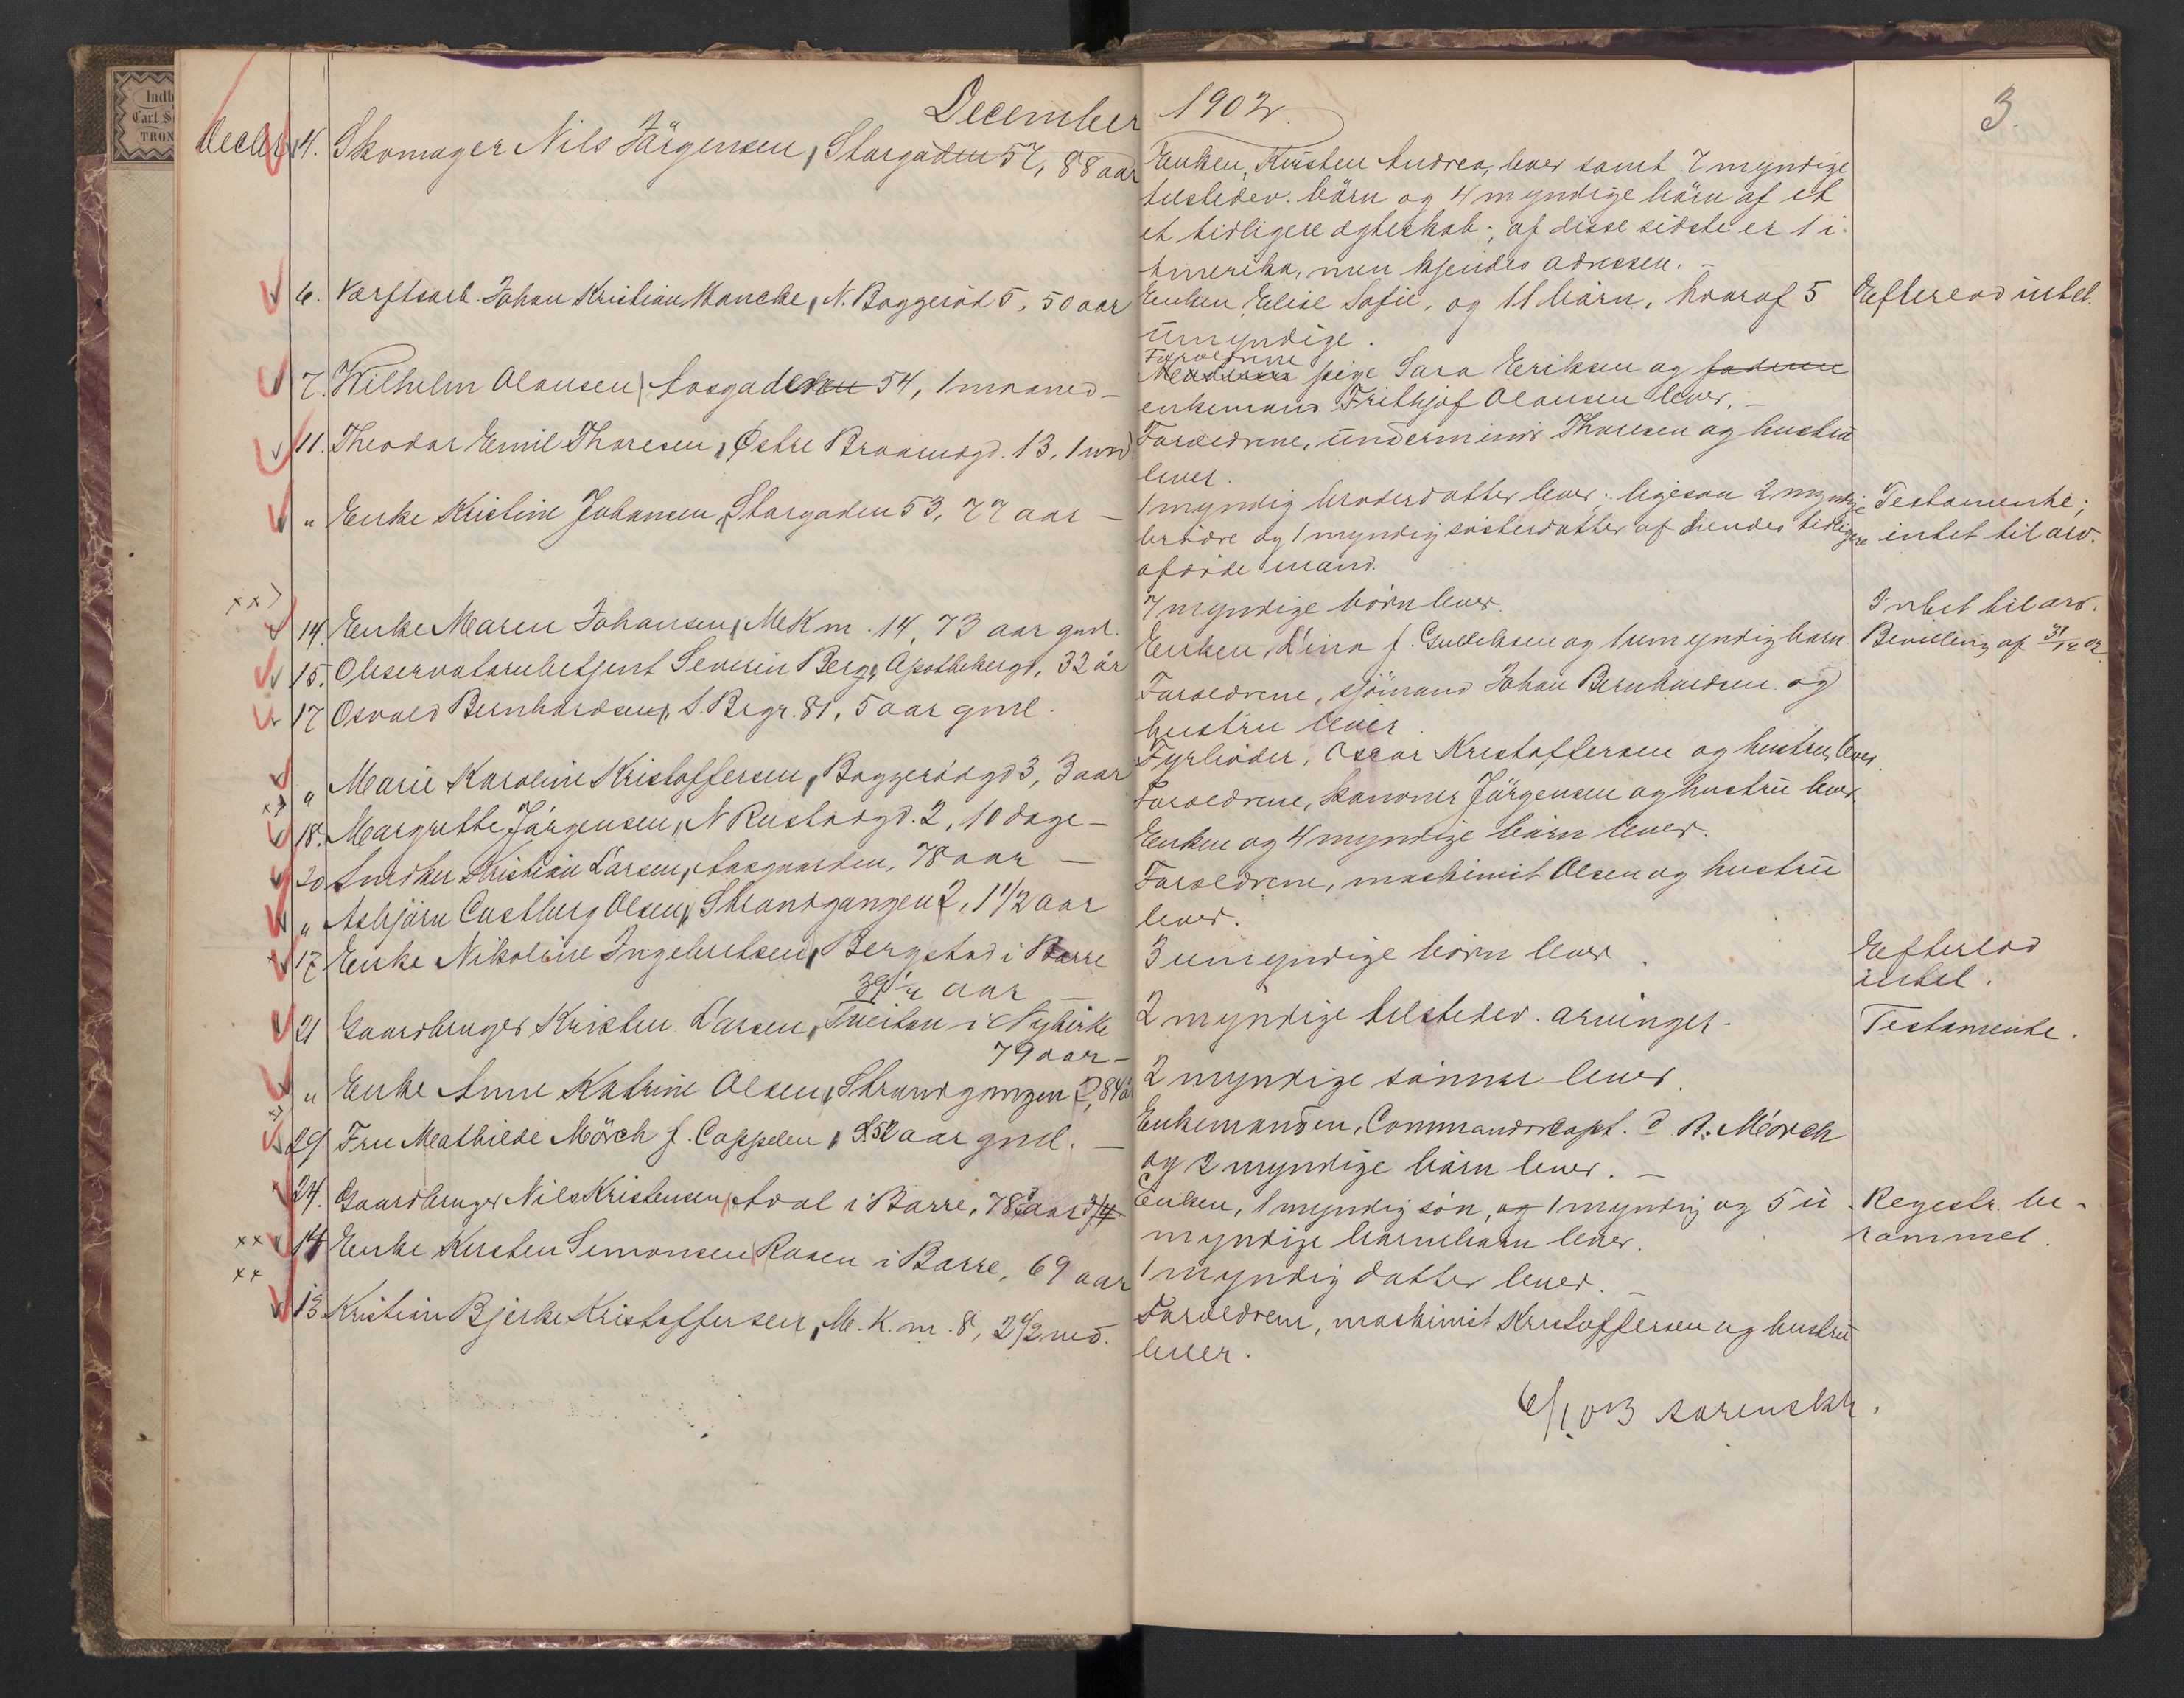 Indb
Carl S
TRON
December 1902.
3.
Decbr 4. Skomager Nils Jörgensen, Storgaden 57, 88 aar
Enken, Kirsten Andrea, lever samt 7 myndige
tilstedev. börn og 4 myndige börn af et
et tidligere ægteskab; af disse sidste er 1 i
Amerika, men kjendes adressen. -
6. Værftsarb. Johan Kristian Mancke, N. Baggeröd 5, 50 aar
Enken, Elise Sofie, og 11 börn, hvoraf 5
umyndige.
Efterlod intet.
7. Wilhelm Olausen, Aasgaden 54, 1 maaned -
Forældrene
pige Sara Eriksen og faderen
enkemand Frithjof Olausen lever. -
11. Theodor Emil Thoresen, Østre Braarudgd. 13, 1 md
Forældrene, underminör Thoresen og hustru
lever.
" Enke Kristine Johansen, Storgaden 53, 77 aar -
1 myndig broderdatter lever; ligesaa 2 myndige
brödre og 1 myndig sösterdatter af hendes tidligere
afdöde mand.
Testamente;
intet til arv.
xx)
14. Enke Maren Johansen, M.K.m. 14, 73 aar gml.
7 myndige börn lever.
Intet til arv.
15. Observatoriebetjent Severin Berg, Apothekergd, 32 år
Enken Lina f. Gulliksen og 1 umyndig barn.
Bevilling af 31/12 02.
17 Osvald Bernhardsen, S. Bygr. 81, 5 aar gml.
Forældrene, sjömand Johan Bernhardsen og
hustru lever
" Marie Karoline Kristoffersen, Baggerödgd 3, 3 aar
Fyrböder, Oscar Kristoffersen og hustru lever.
x)
18. Margrethe Jörgensen, N Rustadgd. 2, 10 dage -
Forældrene, kanoner Jörgensen og hustru lever.
20 Snedker Kristian Larsen, Aasgaarden, 78 aar -
Enken og 4 myndige börn lever.
" Asbjörn Castberg Olsen, Strandgangen 2, 1 1/2 aar
Forældrene, maskinist Olsen og hustru
lever.
17 Enke Nikoline Ingebretsen, Bergstad i Borre
39 1/2 aar -
3 umyndige börn lever.
Efterlod
intet.
21 Gaardbruger Kristen Larsen, Tveitan i Nykirke
79 aar -
2 myndige tilstedev. arvinger.
Testamente.
" Enke Anne Katrine Olsen, Strandgangen 2, 84 a
2 myndige sönner lever.
x)
29 Fru Mathilde Mörch f. Cappelen, 52 aar gml. -
Enkemanden, Commandörcapt. P. A. Mörch
og 2 myndige börn lever. -
24. Gaardbruger Nils Kristensen, Adal i Borre, 78 3/4 aar
Enken, 1 myndig sön, og 1 myndig og 5 u-
myndige barnebarn lever.
Registr. be-
rammet.
xx
14 Enke Kirsten Simonsen Rosen i Borre, 69 aar
1 myndig datter lever. -
xx
13 Kristian Bjerke Kristoffersen, M.K.m. 8, 2 1/2 md.
Forældrene, maskinist Kristoffersen og hustru
lever.
6/1 03 sorenskr.